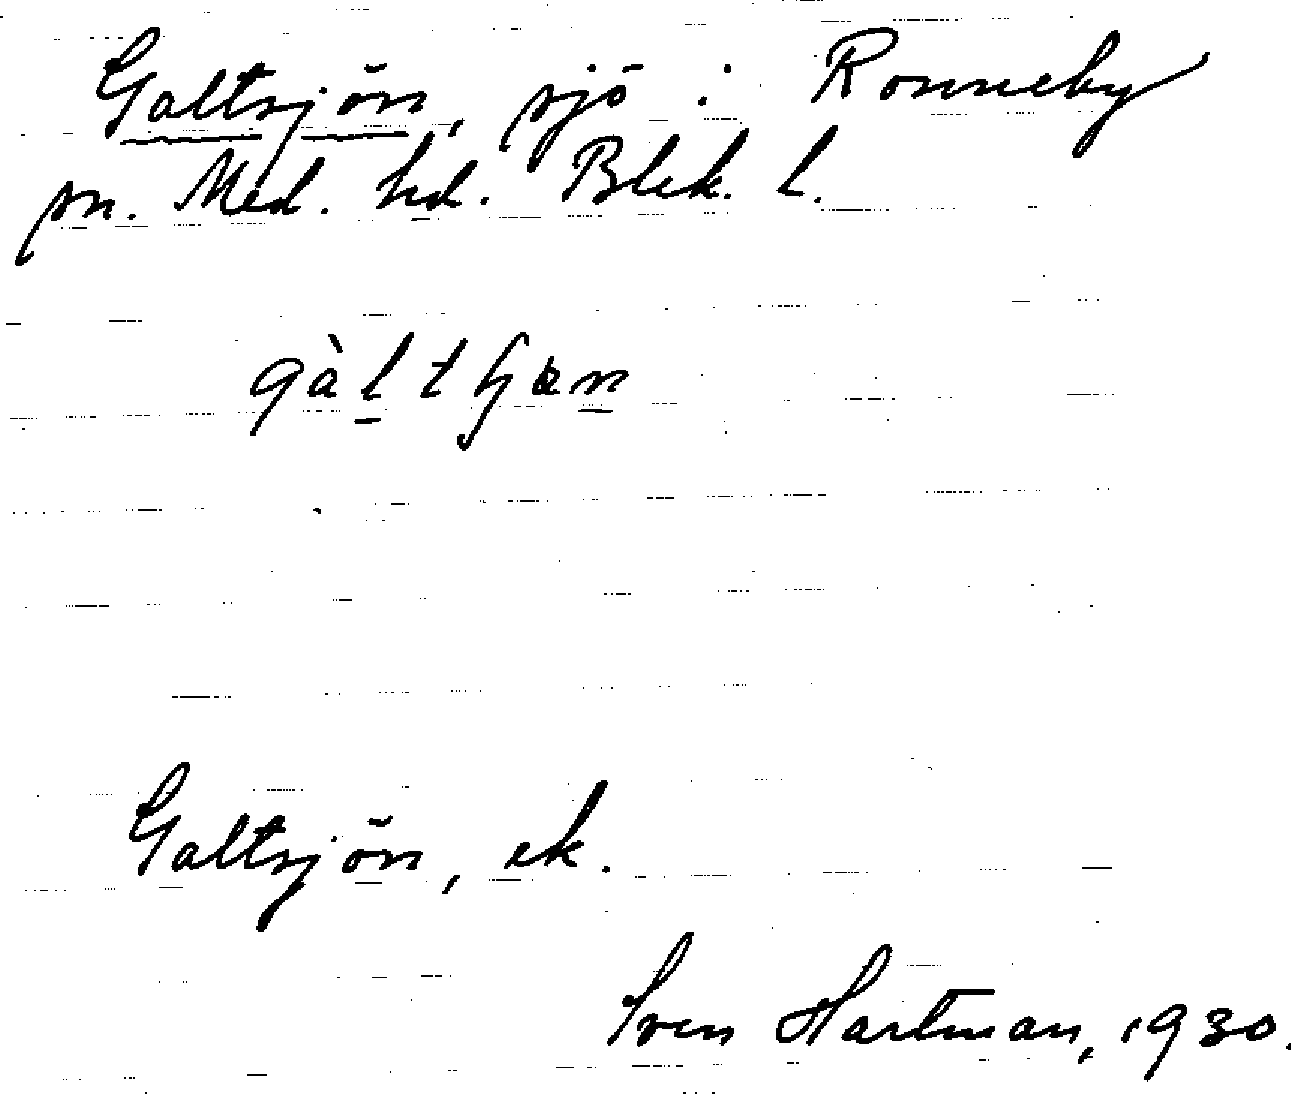 Galtsjön, sjö i Ronneby
sn. Med. hd. Blek. l.
Galtsjön, ek.
Sven Hartman, 1930.